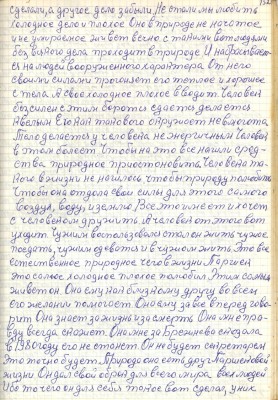 сделали, а другое дело забыли. Не стали любить
Холодное дело и плохое Оно в природе не нагатое
и не умираемое живет вечно, с такими вот людьми
без всякого дела проходит в природе. И набрасывает-
ся на людей вооруженного характера. От него
своими силами прогоняет его теплое и хорошее
с тела. А свое холодное плохое вводит. Человек
обессилен с этим бороться сдается делается
больным его как такового окружает невмогота,
Тело делается у человека не энергичным. Человек
в этом болеет. Чтобы на это все нашли сред-
ства природное приостановить. Человека та-
кого в жизни не нашлось чтобы природу полюбить
Чтобы она отдала свои силы для этого самого
воздух, воду, и землю. Все это имеет и хочет
с человеком дружить. А человек от этого вот
уходит. Чужим воспользовался стал он жить чужое
поедать, чужим одеваться и в чужом жить. Это все
естественное природное чего в жизни Паршек
Это самое холодное плохое полюбил. Этим самым
живет он. Она ему как близкому другу во всем
его желании помогает. Она ему за все вперед гово-
рит. Она знает за жизнь и за смерть. Она мне прав-
ду всегда скажет. Она мне за Брежнева сказала
в 1980 году его не станет. Он не будет секретарем
Это точно будет. Природа она есть друг Паршековой
жизни Он дал свой образ для всего мира всех людей
Все то чего он для себя такое вот сделал, у них